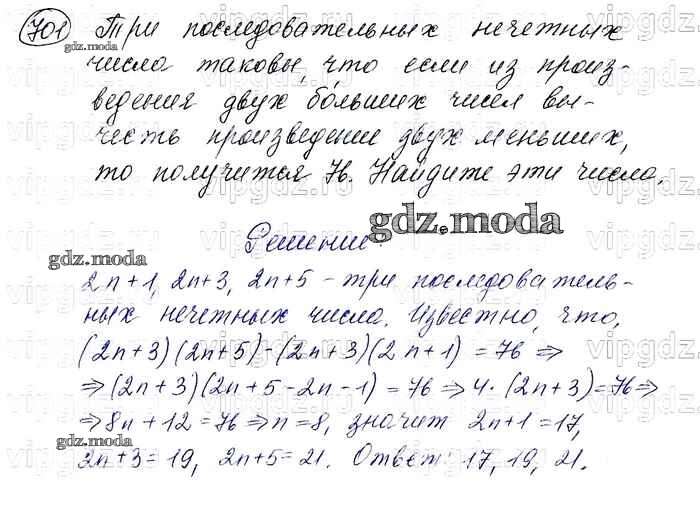 701 Три последовательных нечетных
числа таковы, что если из произ-
ведения двух больших чисел вы-
честь произведение двух меньших,
то получится 76. Найдите эти числа.
Решение
2n+1, 2n+3, 2n+5 - три последователь-
ных нечетных числа. Известно, что,
(2n+3)(2n+5)-(2n+3)(2n+1) = 76 ⇒
⇒ (2n+3)(2n+5-2n-1) = 76 ⇒ 4·(2n+3)=76 ⇒
⇒ 8n+12=76 ⇒ n=8, значит 2n+1=17,
2n+3=19, 2n+5=21. Ответ: 17, 19, 21.
gdz.moda
gdz.moda
gdz.moda
gdz.moda
vipgdz